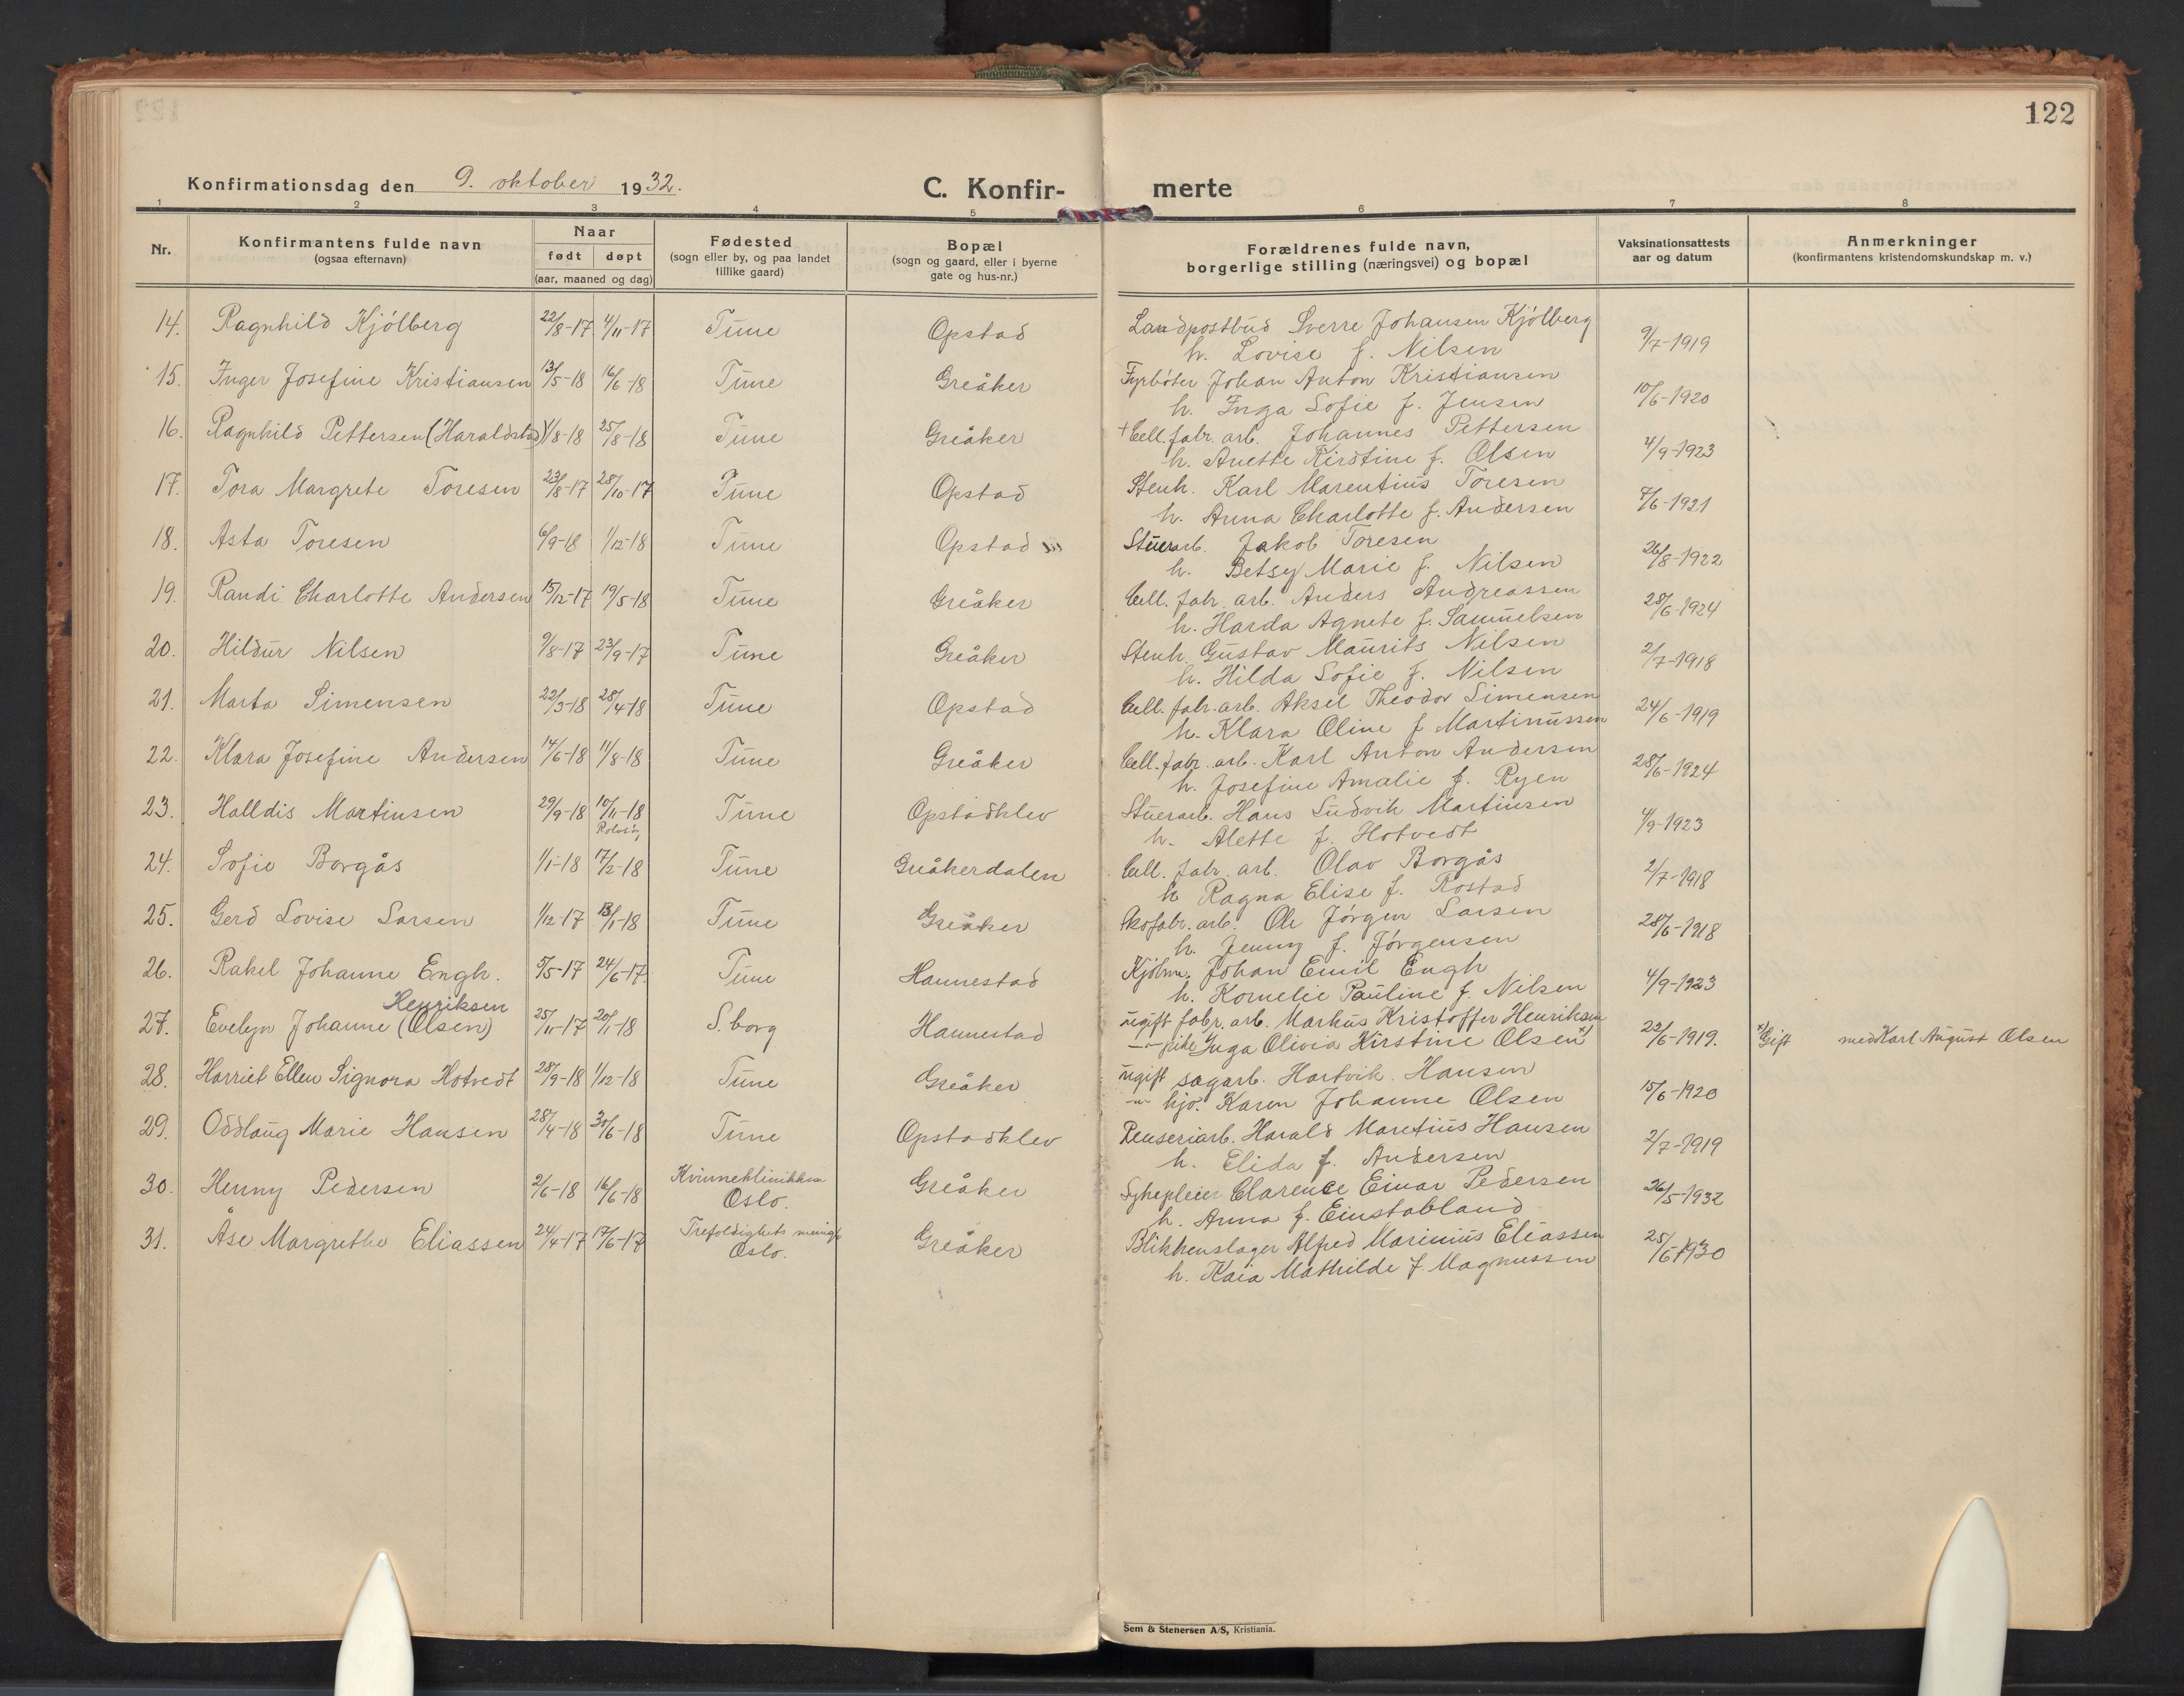 122
Konfirmationsdag den 9. oktober 1932. C. Konfir- merte
1 2 3 4 5 6 7 8
Nr. Konfirmantens fulde navn (ogsaa efternavn) Naar født døpt (aar, maaned og dag) Fødested (sogn eller by, og paa landet tillike gaard) Bopæl (sogn og gaard, eller i byerne gate og hus-nr.) Forældrenes fulde navn, borgerlige stilling (næringsvei) og bopæl Vaksinationsattests aar og datum Anmerkninger (konfirmantens kristendomskundskap m. v.)
14. Ragnhild Kjølberg 22/8-17 4/11-17 Tune Opstad Landpostbud Sverre Johansen Kjølberg
h. Lovise f. Nilsen 9/7-1919
15. Inger Josefine Kristiansen 13/5-18 16/6-18 Tune Greåker Fyrbøter Johan Anton Kristiansen
h. Inga Sofie f. Jensen 10/6-1920
16. Ragnhild Pettersen (Haraldstad) 1/8-18 25/8-18 Tune Greåker +Cell. fabr. arb. Johannes Pettersen
h. Anette Kirstine f. Olsen 4/9-1923
17. Tora Margrete Toresen 23/8-17 28/10-17 Tune Opstad Stenh. Karl Marentius Toresen
h. Anna Charlotte f. Andersen 7/6-1921
18. Asta Toresen 6/9-18 1/12-18 Tune Opstad Stuerarb. Jakob Toresen
h. Betsy Marie f. Nilsen 26/8-1922
19. Randi Charlotte Andersen 15/12-17 19/5-18 Tune Greåker Cell. fabr. arb. Anders Andreassen
h. Harda Agnete f. Samuelsen 28/6-1924
20. Hildur Nilsen 9/8-17 23/9-17 Tune Greåker Stenh. Gustav Maurits Nilsen
h. Hilda Sofie f. Nilsen 2/7-1918
21. Marta Simensen 22/3-18 28/4-18 Tune Opstad Cell. fabr. arb. Aksel Theodor Simensen
h. Klara Oline f Martinussen 24/6-1919
22. Klara Josefine Andersen 14/6-18 11/8-18 Tune Greåker Cell. fabr. arb. Karl Anton Andersen
h. Josefine Amalie f. Ryen 28/6-1924
23. Halldis Martinsen 29/9-18 10/11-18 Tune Opstadklev Stuerarb. Hans Ludvik Martinsen
h. Alette f. Hotvedt 4/9-1923
24. Sofie Borgås 1/1-18 17/2-18 Tune Greåkerdalen Cell. fabr. arb. Olav Borgås
h Ragna Elise f. Rostad 2/7-1918
25. Gerd Lovise Larsen 1/12-17 13/1-18 Tune Greåker Skofabr. arb. Ole Jørgen Larsen
h. Jenny f. Jørgensen 28/6-1918
26. Rakel Johanne Engh. 5/5-17 24/6-17. Tune Hannestad Kjøbm. Johan Emil Engh
h. Kornelie Pauline f. Nilsen 4/9-1923
Henriksen
27. Evelyn Johanne (Olsen) 25/11-17 20/1-18 S. borg Hannestad ugift fabr. arb. Markus Kristoffer Henriksen
-"- pike Inga Olivia Kirstine Olsen x) 23/6-1919. x) Gift med Karl August Olsen
28. Harriet Ellen Signora Hotvedt 28/9-18 1/12-18 Tune Greåker ugift sagarb. Hartvik Hansen
-"- hjo. Karen Johanne Olsen 15/6-1920
29. Oddlaug Marie Hansen 28/4-18 30/6-18 Tune Opstadklev Renseriarb. Harald Maretius Hansen
h. Elida f. Andersen 2/7-1919
30. Henny Pedersen 2/6-18 16/6-18 Kvinneklinikken Oslo. Greåker Sykepleier Clarence Einar Pedersen
h. Anna f. Einstabland 26/5-1932
31. Åse Margrethe Eliassen 24/4-17 17/6-17 Trefoldighets menigh Oslo. Greåker Blikkenslager Alfred Marinius Eliassen
h. Kaia Mathilde f. Magnussen 25/6-1930
Sem & Stenersen A/S, Kristiania.